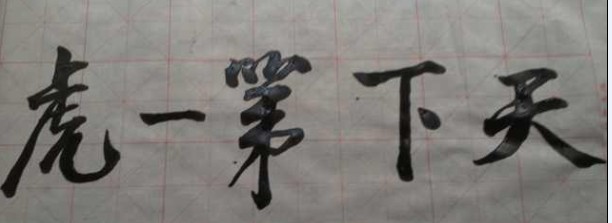 天下第一虎